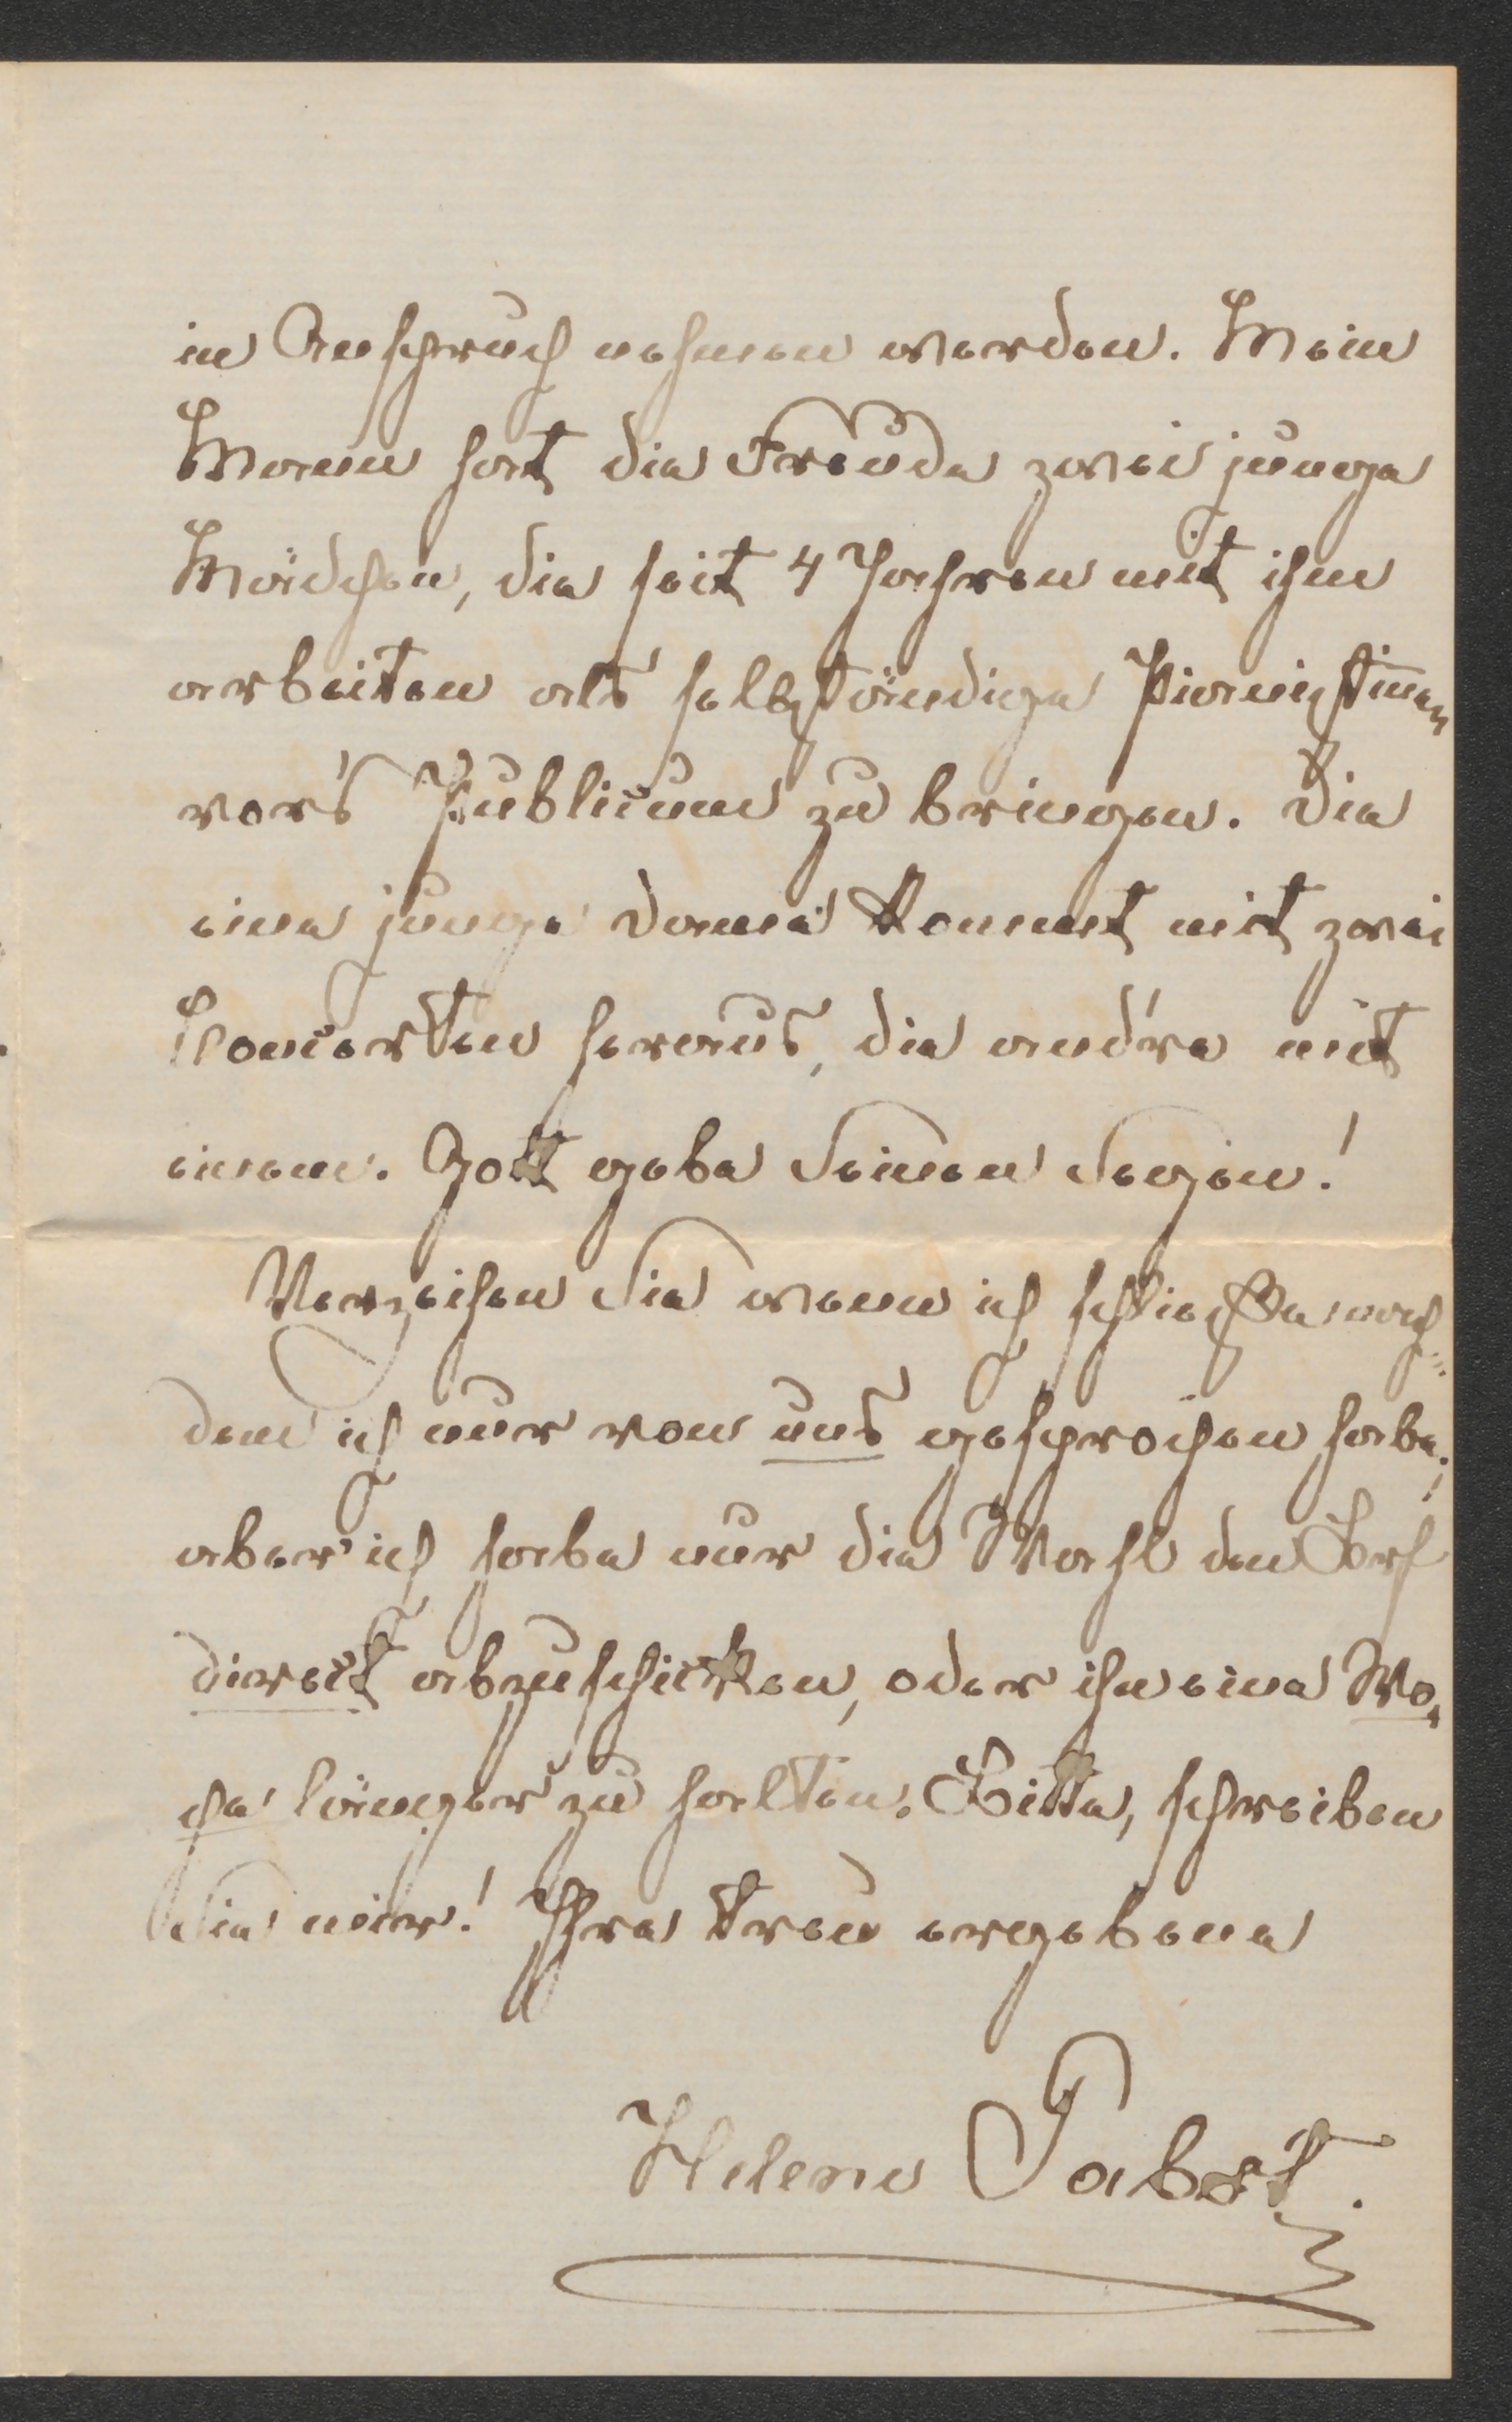 in Anspruch nehmen werden. Mein
Mann hat die Freude zwei junge
Mädchen, die seit 4 Jahren mit ihm
arbeiten als selbständige Pianistinnen
vor's Publicum zu bringen. Die
eine junge Dame kommt mit zwei
Concerten heraus, die andre mit
einem. Gott gebe Seinen Segen!
Verzeihen Sie wenn ich schließe nach=
dem ich nur von uns gesprochen habe;
aber ich habe nur die Wahl den
direct abzuschicken, oder ihn eine Wo=
che länger zu halten. Bitte, schreiben
Sie mir! Ihre treu ergebene
Helene Pabst.